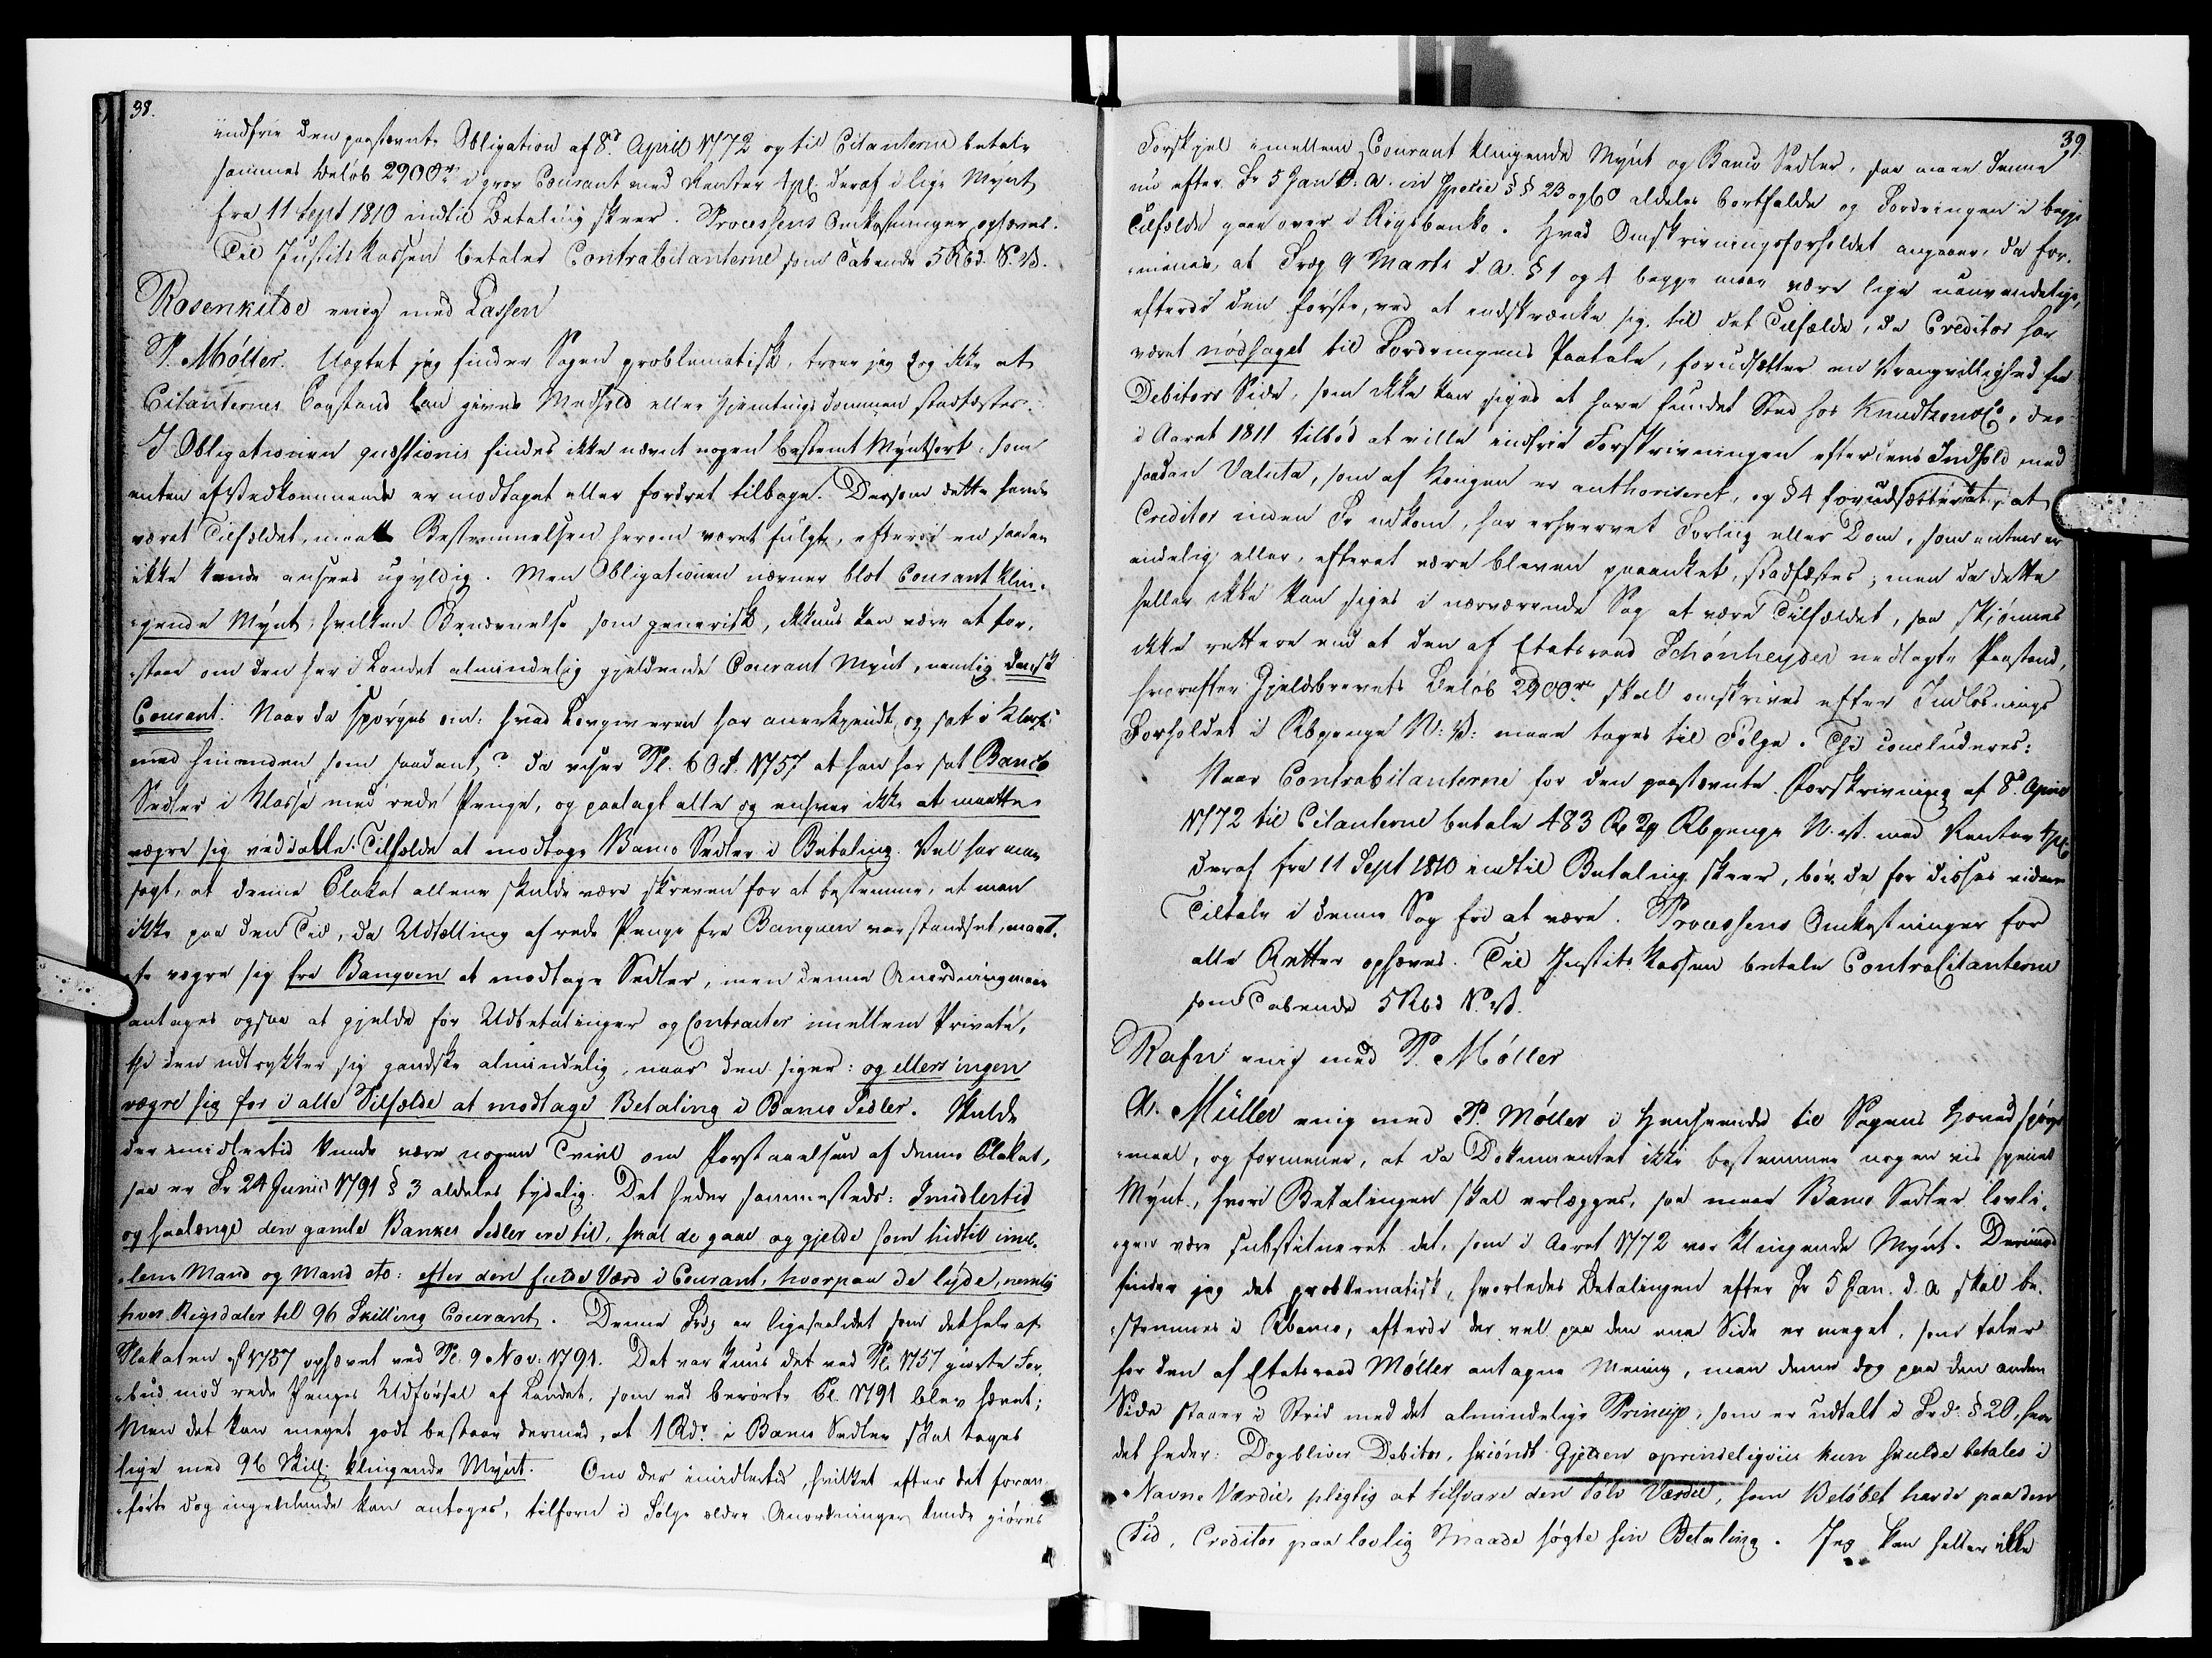 38.
indfrie den paastævnte Obligation af 8d. April 1772 og til Citanterne betale
sammes Beløb 2900 rd i grov Courant med Renter 4 pC. deraf i lige Mynt
fra 11 Sept 1810 indtil Betaling skeer. Processens Omkostninger ophæves.
Til Justitskassen betaler Contracitanterne som tabende 5 Rbd. N.V.
Rosenkilde enig med Lassen
P. Møller. Uagtet jeg finder Sagen problematisk, troer jeg dog ikke at
Citanternes Paastand kan gives Medhold eller Hjemtings dommen stadfæstes.
I Obligationen quæstionis findes ikke nævnt nogen bestemt Myntsort, som
enten af Vedkommende er modtaget eller fordret tilbage. Dersom dette havde
været Tilfældet, maatte Bestemmelsen herom været fulgt, efterdi en saadan
ikke kunde ansees ugyldig. Men Obligationen nævner blot Courant klin-
gende Mynt, hvilken Benævnelse som generisk, ikkuns kan være at for-
staae om den her i Landet almindelig gjeldende Courant Mynt, nemlig dansk
Courant. Naar da spørges om: hvad Lovgiveren har anerkjendt og sat i Klasse
med hinanden som saadant? da viser Pl. 6 Oct. 1757 at han har sat Banco
Sedler i Klasse med rede Penge, og paalagt alle og enhver ikke at maatte
vægre sig ved i alle Tilfælde at modtage Banco Sedler i Betaling. Vel har man
sagt, at denne Plakat allene skulde være skreven for at bestemme, at man
ikke paa den Tid, da Udtælling af rede Penge fra Banquen var standset, maat-
te vægre sig fra Banqven at modtage Sedler, men denne Anordning maae
antages ogsaa at gjelde for Udbetalinger og Contracter imellem Private,
thi den udtrykker sig gandske almindelig, naar den siger: og ellers ingen
vægre sig for i alle Tilfælde at modtage Betaling i Banco Sedler. Skulde
der imidlertid kunde være nogen Tvivl om Forstaaelsen af denne Plakat,
saa er Fr 24 Junii 1791 § 3 aldeles tydelig. Det heder sammesteds: Imidlertid
og saalænge den gamle Bankes Sedler ere til, skal de gaae og gjelde som hidtil imel-
lem Mand og Mand etc: efter den fulde Værd i Courant, hvorpaa de lyde, nemlig
hver Rigsdaler til 96 Skilling Courant. Denne Frdg er ligesaalidet som det hele af
Plakaten af 1757 ophævet ved Pl. 9 Nov: 1791. Det var kuns det ved Pl. 1757 giorte For-
bud mod rede Penges Udførsel af Landet, som ved berørte Pl. 1791 blev hævet;
Men det kan meget godt bestaae dermed, at 1 Rdr. i Banco Sedler skal tages
lige med 96 Skill. klingende Mynt. Om der imidlertid, hvilket efter det foran-
førte dog ingenlunde kan antages, tilforn i Følge ældre Anordninger kunde giøres
39.
Forskjel imellem Courant klingende Mynt og Banco Sedler, saa maae denne
nu efter Fr 5 Jan d. A. in specie §§ 23 og 60 aldeles bortfalde og Fordringen i begge
Tilfælde gaae over i Rigsbanko. Hvad Omskrivningsforholdet angaaer, da for-
menes, at Frdg 9 Marts d. A. § 1 og 4 begge maae være lige uanvendelige,
efterdi den første, ved at indskrænke sig til det Tilfælde, da Creditor har
været nødsaget til Fordringens Paatale, forudsætter en Uvangvillighed fra
Debitors Side, som ikke kan siges at have fundet Sted hos Knudtzon & Co, der
i Aaret 1811 tilbød at ville indfrie Forskrivningen efter dens Indhold med
saadan Valuta, som af Kongen er authoriseret, og § 4 forudsætter at, at
Creditor inden Fr udkom, har erhvervet Forliig eller Dom, som enten er
endelig eller, efterat være bleven paaanket, stadfæstes; men da dette
heller ikke kan siges i nærværende Sag at være Tilfældet, saa skjønnes
ikke rettere end at den af Etatsraad Schønheyder nedlagte Paastand,
hvorefter Gjeldsbrevets Beløb 2900 rd skal omskrives efter Indløsnings
Forholdet i Rbpenge N:V: maae tages til Følge. Thi concluderes:
Naar Contracitanterne for den paastævnte Forskrivning af 8d. April
1772 til Citanterne betale 483 Rd 2 # Rbpenge N.V. med Renter 4 pC.
deraf fra 11 Sept 1810 indtil Betaling skeer, bør de for disses videre
Tiltale i denne Sag frie at være. Processens Omkostninger for
alle Retter ophæves. Til Justits Kassen betale Contracitanterne
som tabende 5 Rbd N.V.
Rafn enig med P. Møller
A. Müller enig med P. Møller i Henseende til Sagens Hovedspørgs-
maal, og formener, at da Dokumentet ikke bestemmer nogen vis speciel
Mynt, hvori Betalingen skal erlægges, saa maae Banco Sedler lovli-
gen være substitueret det, som i Aaret 1772 var klingende Mynt. Derimod
finder jeg det problematisk, hvorledes Betalingen efter Fr 5 Jan. d. A skal be-
stemmes i Rbanco, efterdi der vel paa den ene Side er meget, som taler
for den af Etatsraad Møller antagne Mening, men denne dog paa den anden
Side staaer i Strid med det almindelige Princip, som er udtalt i Frd. § 20, hvor
det heder: Dog bliver Debitor, skiøndt Gjelden oprindeligviis kun skulde betales i
Navne Værdie, pligtig at tilsvare den Sølv Værdie, som Beløbet havde paa den
Tid, Creditor paa lovlig Maade søgte sin Betaling. Jeg kan heller ikke